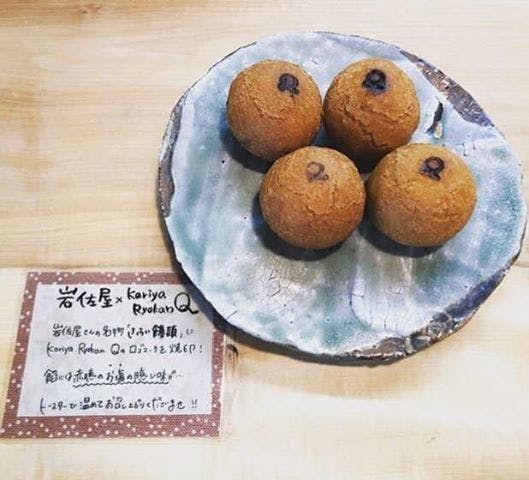 Q
Q
Q
Q
岩佐屋 × Kariya
Ryokan Q
岩佐屋さんの名物「 饅頭」に
Kariya Ryokan Qのロゴマークを焼印!
餡には赤穂のお塩の隠し味が…
トースターで温めてお召し上がりくださいませ!!